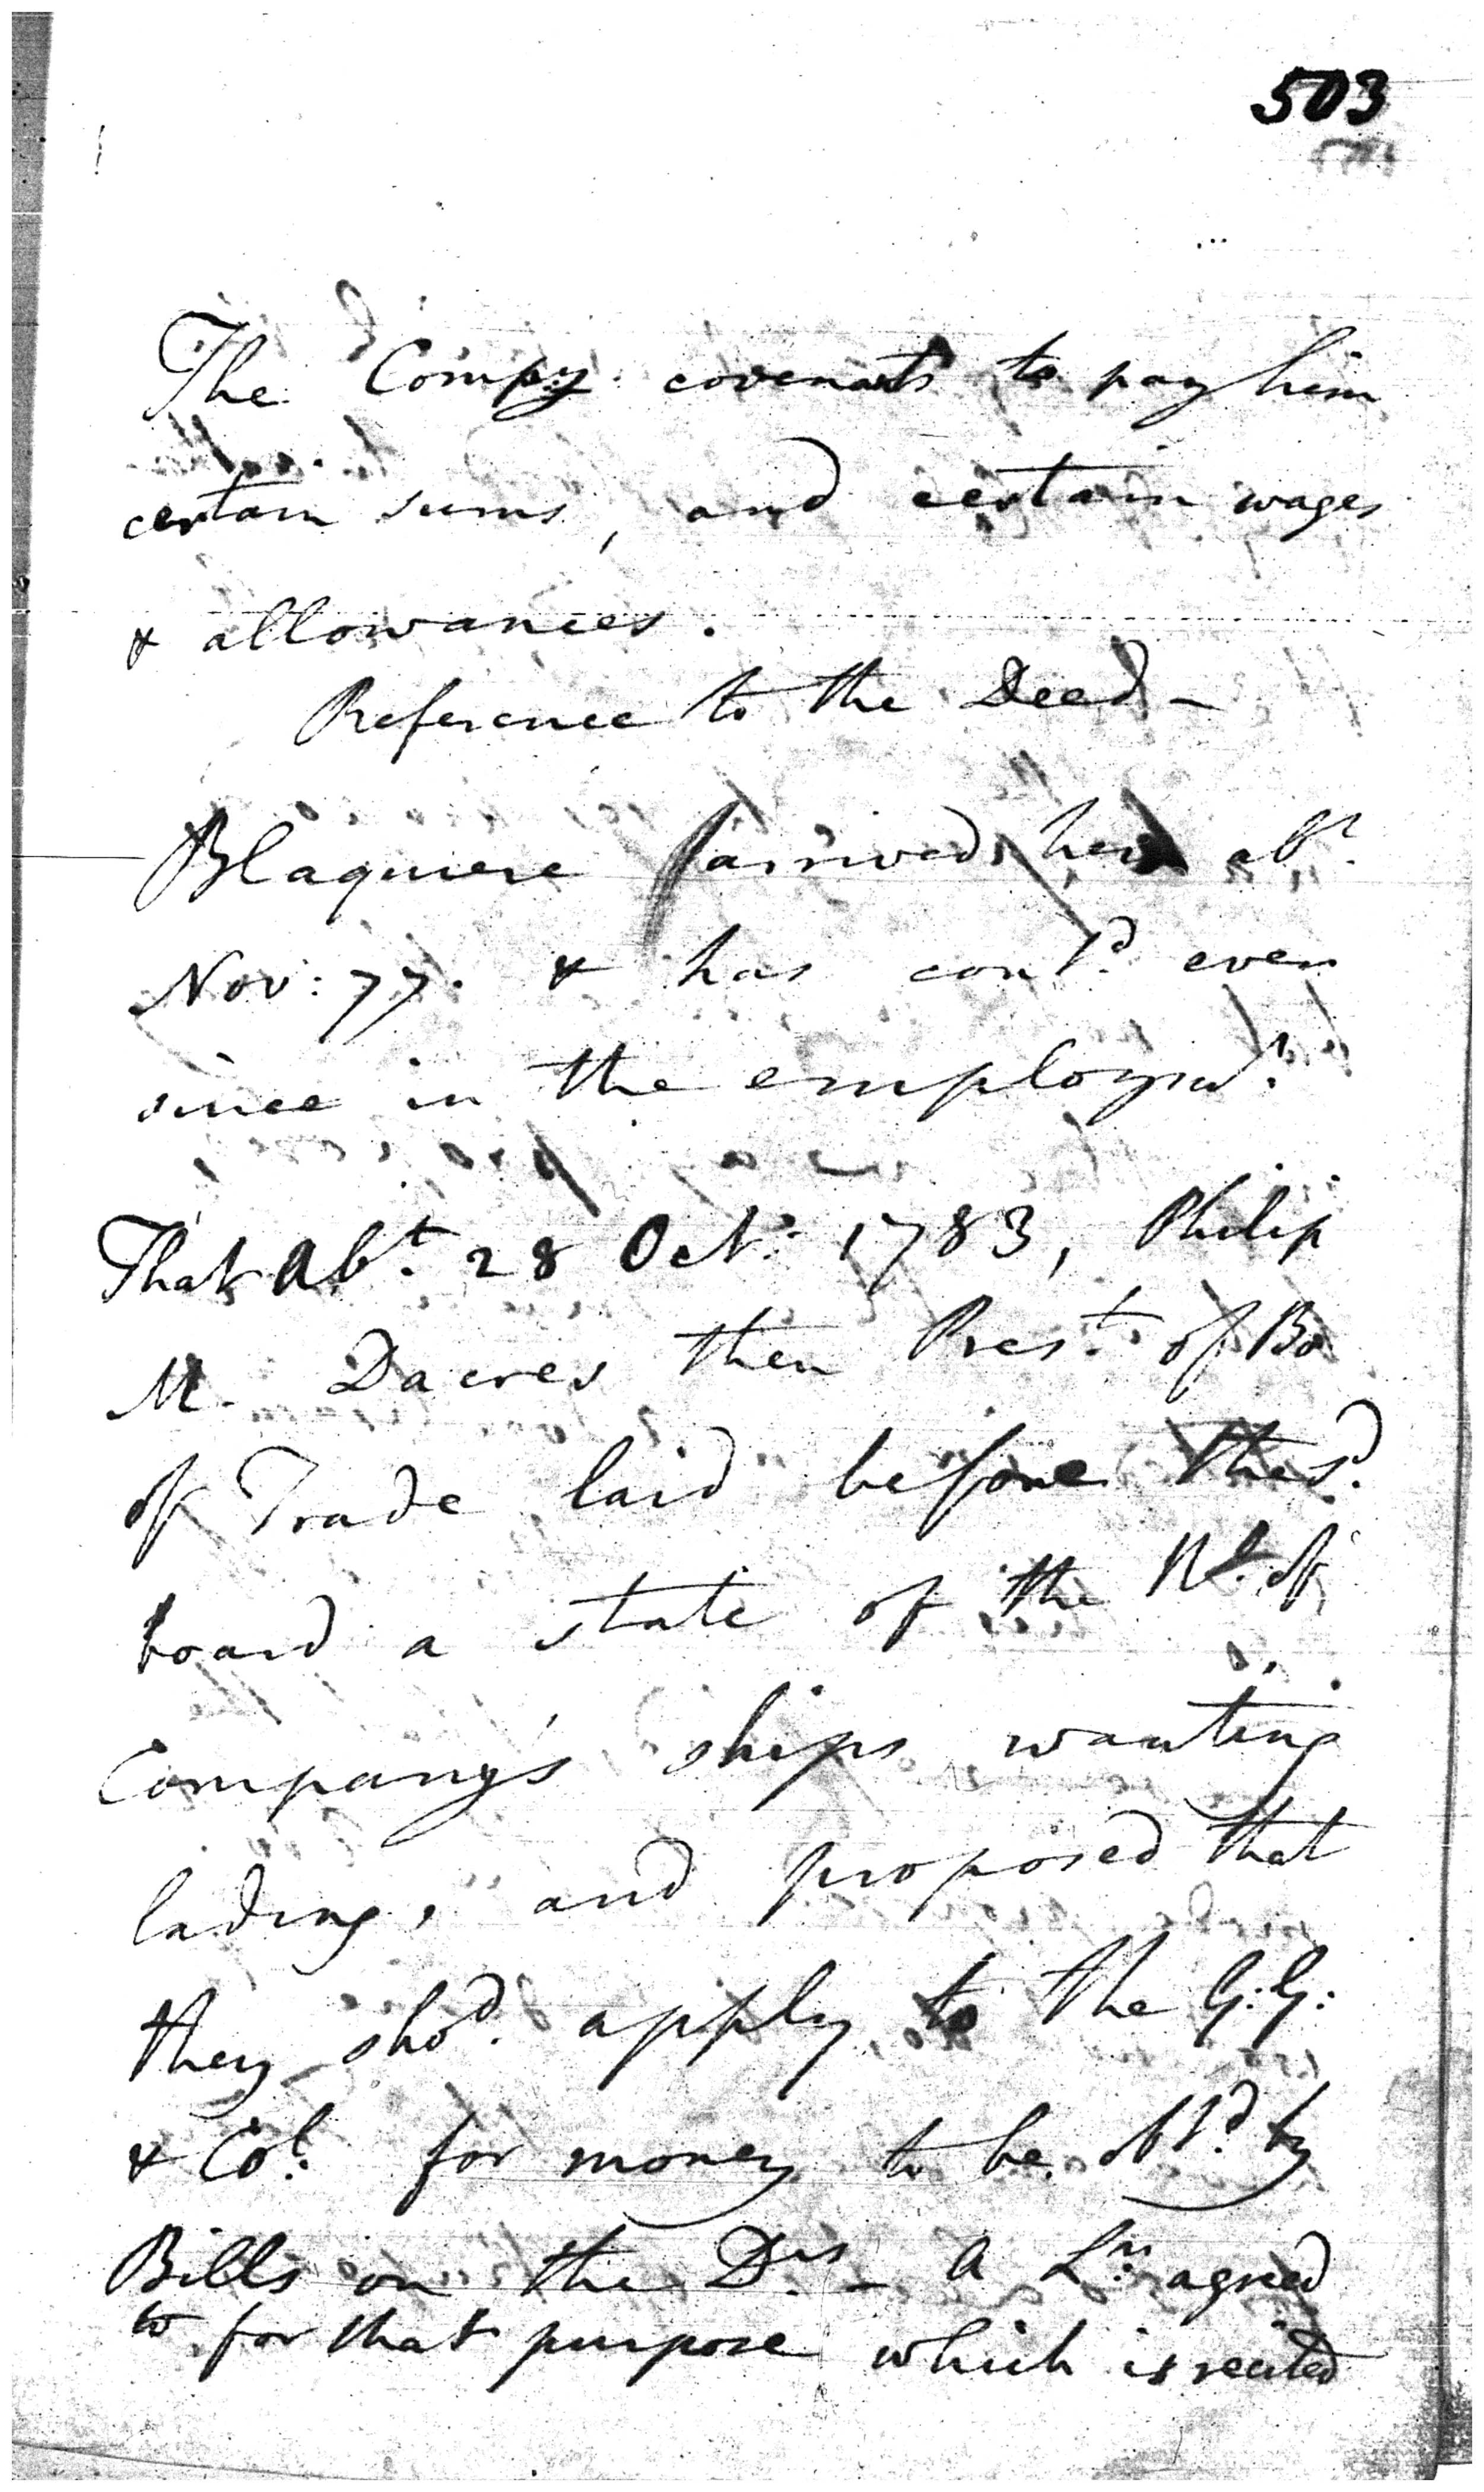 503
The Compy: covenants to pay him
certain sums, and certain wages
& allowances.
Reference to the Deed –
Blaquiere arrived here abt.
Nov: 77. & has contd. ever
since in the employmt.
That abt. 28 Oct: 1783, Philip
M. Dacres then Prest. of Bd
of Trade laid before the sd.
board a state of the No. of
Company's ships wanting
lading, and proposed that
they shod. apply to the G: G:
& Col: for money to be obtd. by
Bills on the Drs – a Lr. agreed
to for that purpose which is recited